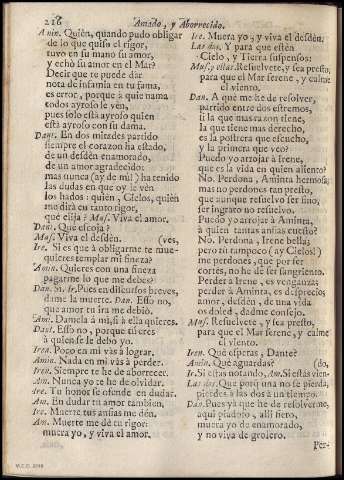 216 Amado, y Aborrecido.
Amin. Quièn, quando pudo obligar
de lo que quiso el rigor,
tuvo en su mano su amor,
y echò su amor en el Mar?
Decir que te puede dàr
nota de infamia en tu fama,
es error, porque à quie nama
todos ayroso le vèn,
pues solo està ayroso quien
està ayroso con su dama.
Dant. En dos mitades partido
siempre el corazon ha estado,
de un desdèn enamorado,
de un amor agradecido:
mas nunca (ay de mi!) ha tenido
las dudas en que oy le vèn
los hados: quièn, Cielos, quièn
me dirà en tanto rigor,
què elija? Mus. Viva el amor.
Dant. Què escoja?
Mus. Viva el desdèn. (vès,
Ire. Si es que à obligarme te mue-
quieres templar mi fineza?
Amin. Quieres con una fineza
pagarme lo que me debes?
Dan. Si. Ir. Pues en discursos breves,
dame la muerte. Dan. Esso no,
que amor tu ira me debiò.
Am. Damela à mi, si à ella quieres.
Dant. Esso no, porque tù eres
à quien se le debo yo.
Iren. Poco en mi vàs à lograr.
Amin. Nada en mi vàs à perder.
Iren. Siempre te he de aborrecer.
Am. Nunca yo te he de olvidar.
Ire. Tu honor se ofende en dudar.
Am. En dudar tu amor tambien.
Ire. Muerte tus ansias me dèn.
Am. Muerte me dè tu rigor:
muera yo, y viva el amor.
Ire. Muera yo, y viva el desdèn.
Las dos. Y para que estèn
Cielo, y Tierra suspensos:
Mus. y ellas. Resuelvete, y sea presto,
para que el Mar serene, y calme
el viento.
Dan. A què me he de resolver,
partido entre dos estremos,
si la que mas razon tiene,
la que tiene mas derecho,
es la postrera que escucho,
y la primera que veo?
Puedo yo arrojar à Irene,
que es la vida en quien aliento?
No. Perdona, Aminta hermosa;
mas no perdones tan presto,
que aunque resuelvo ser fino,
ser ingrato no resuelvo.
Puedo yo arrojar à Aminta,
à quien tantas ansias cuesto?
No. Perdona, Irene bella;
pero tù tampoco (ay Cielos!)
me perdones, que por ser
cortès, no he de ser sangriento.
Perder à Irene, es venganza;
perder à Aminta, es desprecio;
amor, desdèn, de una vida
os doled, dadme consejo.
Mus. Resuelvete, y sea presto,
para que el Mar serene, y calme
el viento.
Iren. Què esperas, Dante?
Amin. Què aguardas? (do,
Ir. Si estàs notando, Am. Si estàs vien-
Las dos. Que porq̃ una no se pierda,
pierdes à las dos à un tiempo.
Dan. Pues yà que he de resolverme,
aqui piadoso, alli fiero,
muera yo de enamorado,
y no viva de grosero.
Per-